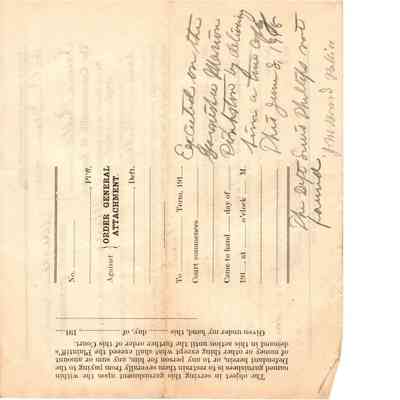 No.
Plff.
Against
ORDER GENERAL
ATTACHMENT.
Deft.
To Term, 191
Court commences
Came to hand day of
191 at o'clock M.
Executed on the
Garnishee Marion
by delivering
him a true copy
This June 8, 1918
The Deft Phillips not
found
Police
Given under my hand, this day, of, 191
The object in serving this garnishment upon the within
named garnishee is to restrain them severally from paying to the
Defendant herein, or to any person for him, any sum or amount
of money or other thing except what shall exceed the Plaintiff's
demand in this action until the further order of this Court.